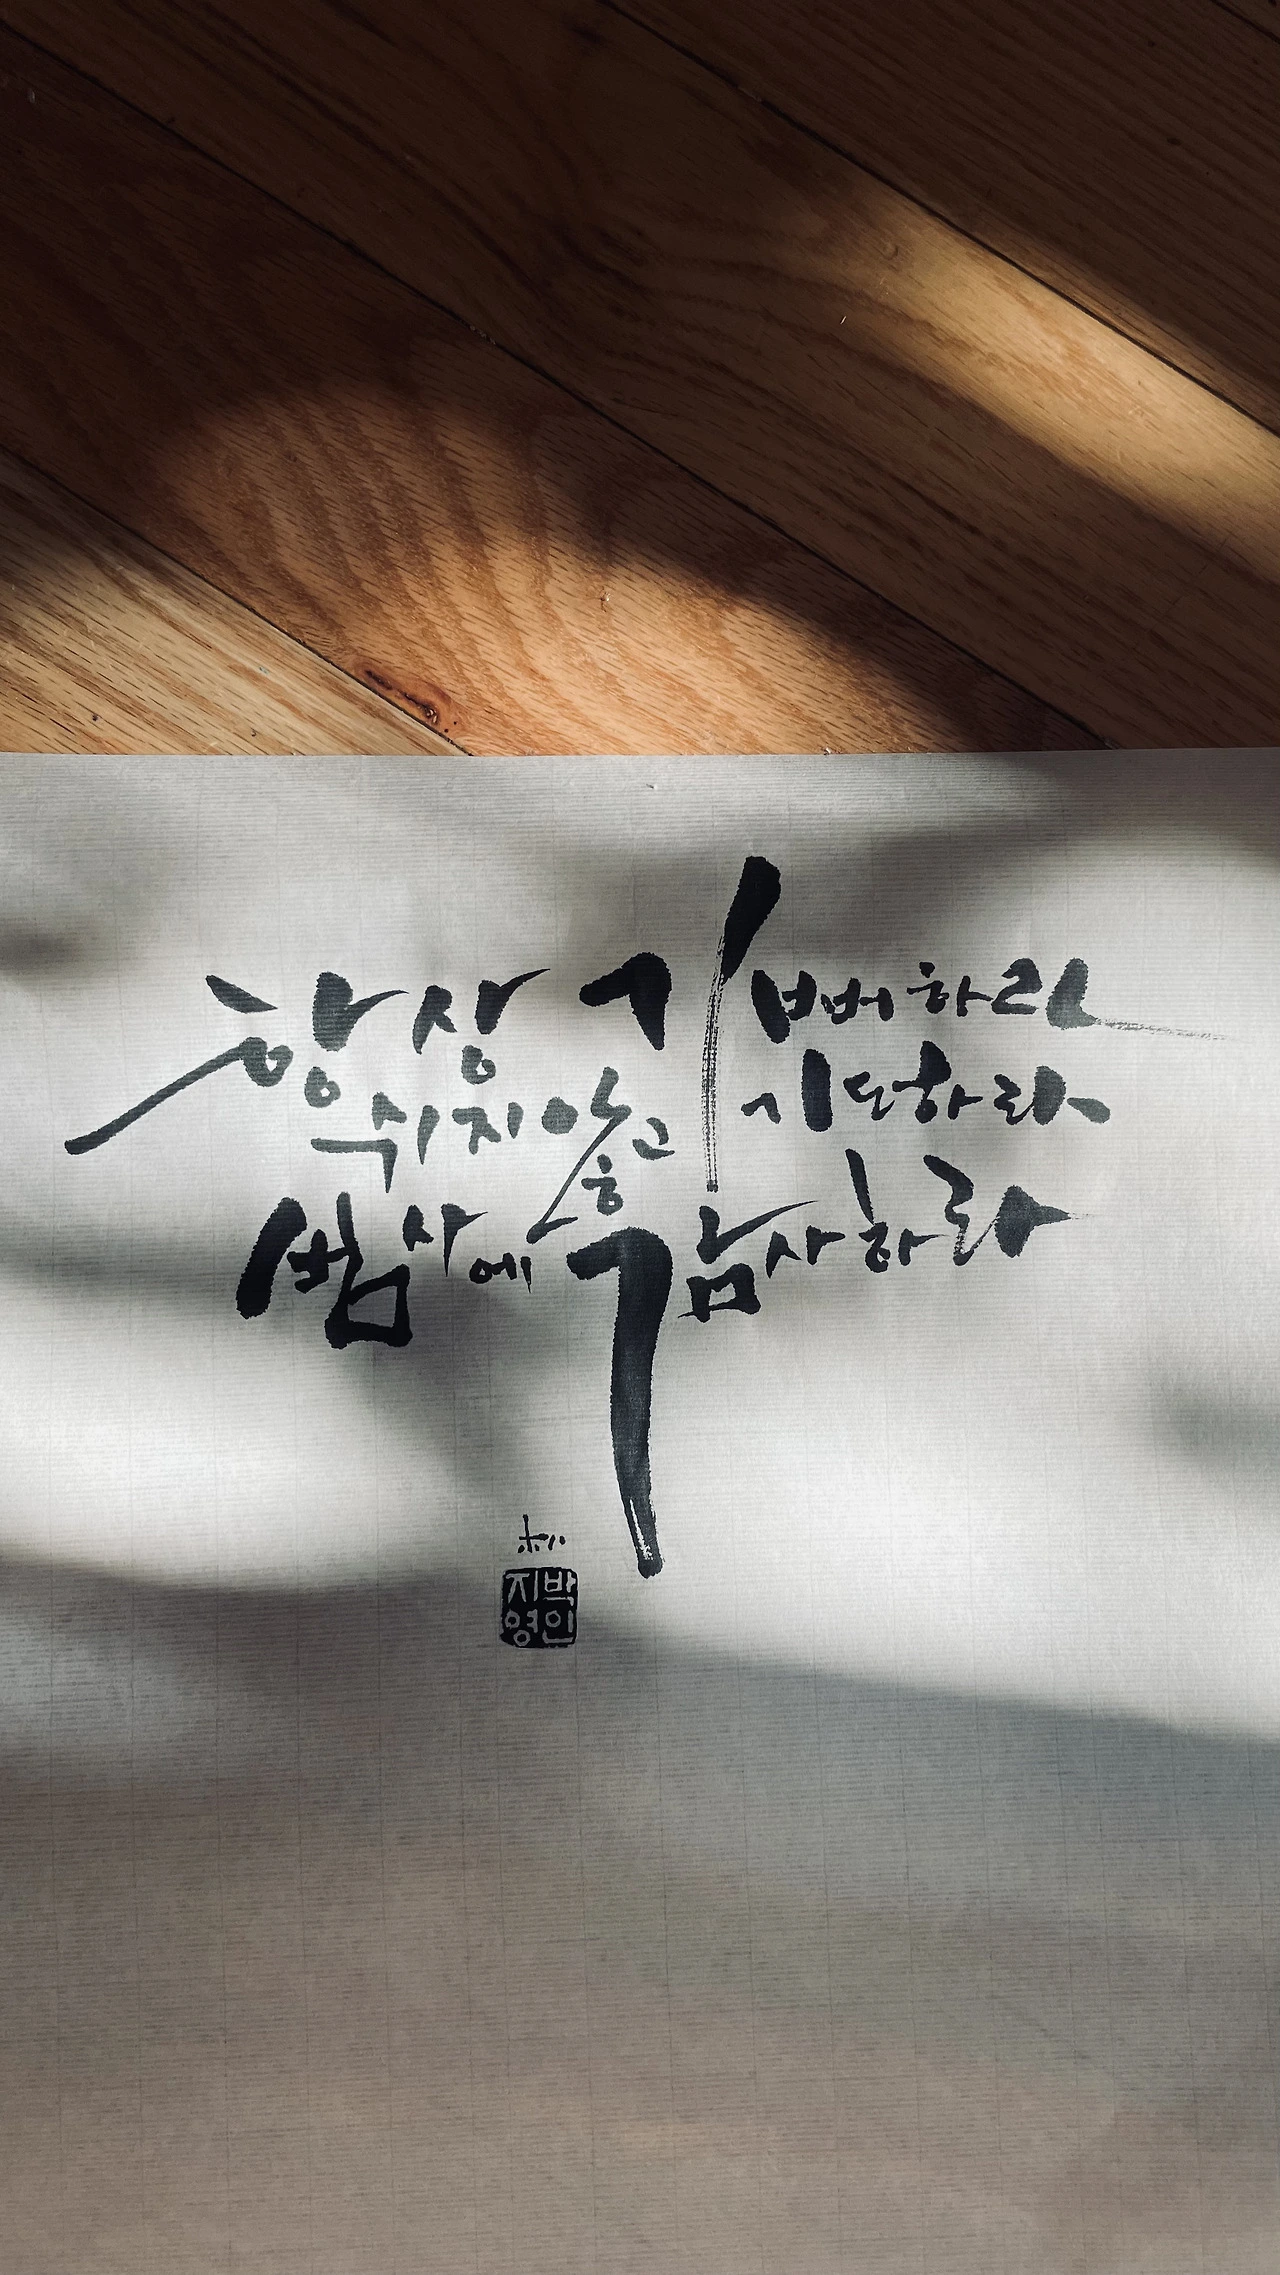 항상 기뻐하라
쉬지 않고 기도하라
범사에 감사하라
박인
지영